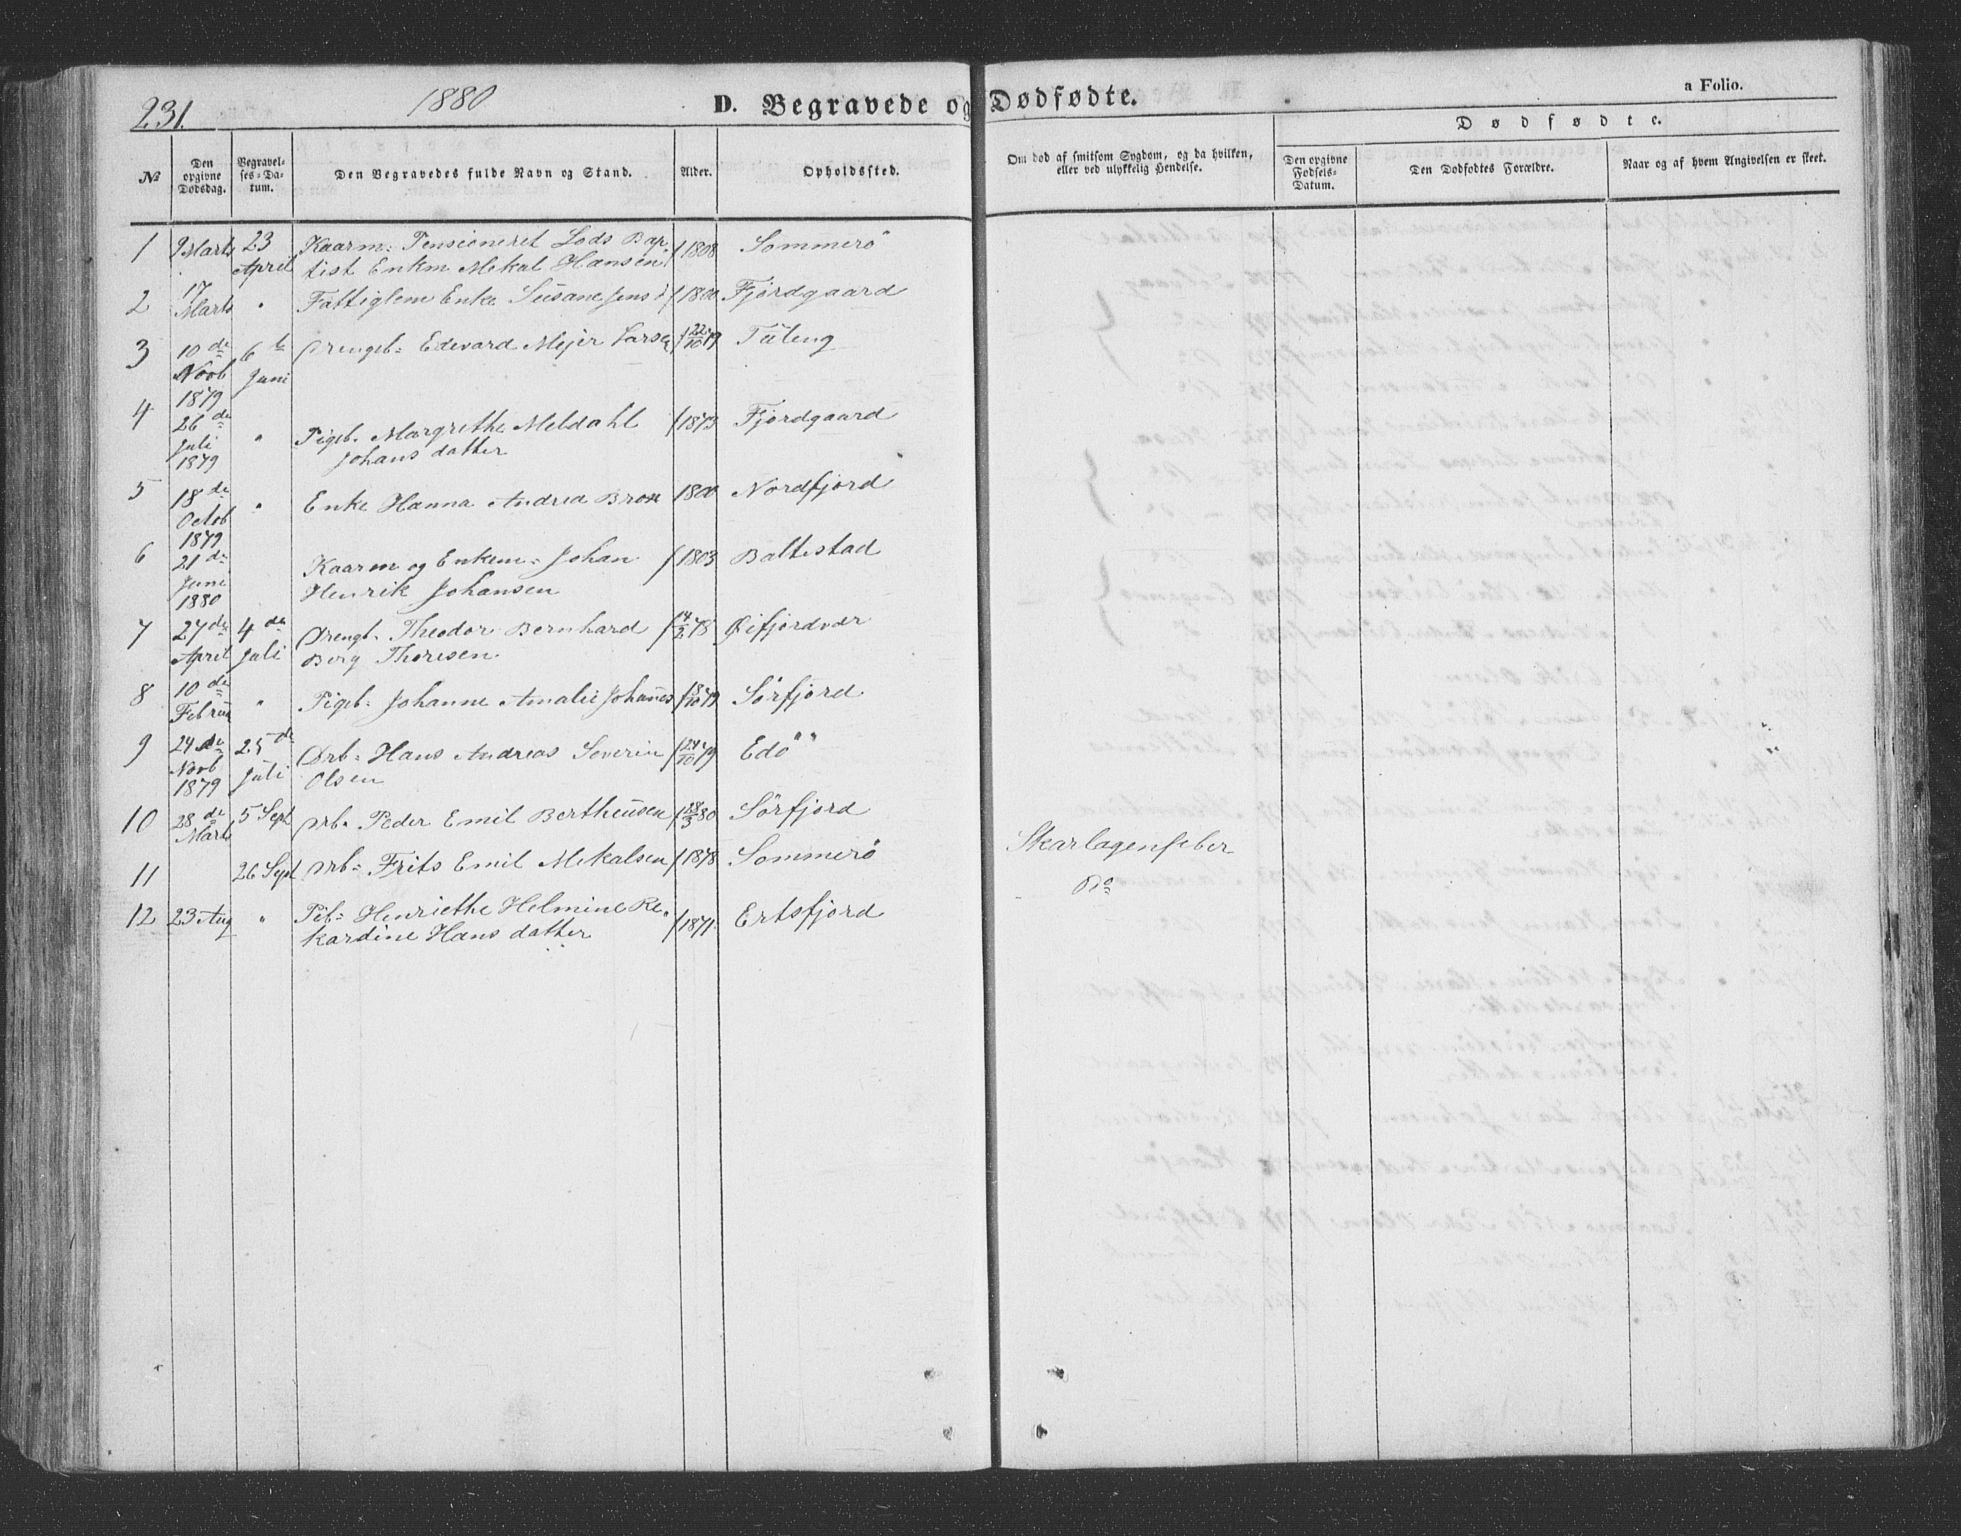 231.
1880
D. Begravede og Dødfødte.
a Folio.
No
Den opgivne Dødsdag.
Begravelses-Datum.
Den Begravedes fulde Navn og Stand.
Alder.
Opholdssted.
Om død af smitsom Sygdom, og da hvilken, eller ved ulykkelig Hendelse.
Dødfødte.
Den opgivne Fødsels-Datum.
Den Dødfødtes Forældre.
Naar og af hvem Angivelsen er skeet.
1 9 Marts 23 April Kaarm: Pensioneret Lods Bap
tist Enkm Mekal Hansen f 1808 Sommerö
2 17 Marts " Fattiglem Enke Susane Jens f 1800 Fjordgaard
3 10de Novb 1879 6te Juni Drengeb: Edevard Mejer Larsen f 22/10 79 Tüleng
4 26de Juli 1879 " Pigeb. Margrethe Meldahl
Johans datter f 1873 Fjordgaard
5 18de Octob 1879 " Enke Hanna Andrea Brox 1800 Nordfjord
6 21de Juni 1880 Kaarm og Enkem: Johan
Henrik Johansen f 1803 Baltestad
7 27de April 4de Juli Drengb. Theodor Bernhard
Berg Thoresen f 4/2 78 Øifjordvær
8 10de Februar " Pigeb. Johanne Amalie Johannes f 18/10 79 Sörfjord
9 24de Novb 1879 25de Juli Drb: Hans Andreas Severin
Olsen f 24/10 79 Edö
10 28de Marts 5 Sept Drb. Peder Emil Bertheüsen f 28/3 80 Sörfjord
11 26 Sept Drb: Frits Emil Mekalsen f 1878 Sommerö Skarlagensfeber
12 23 Aug " Pib: Henriethe Helmine Re
kardine Hans datter f 1871 Ertsfjord Do